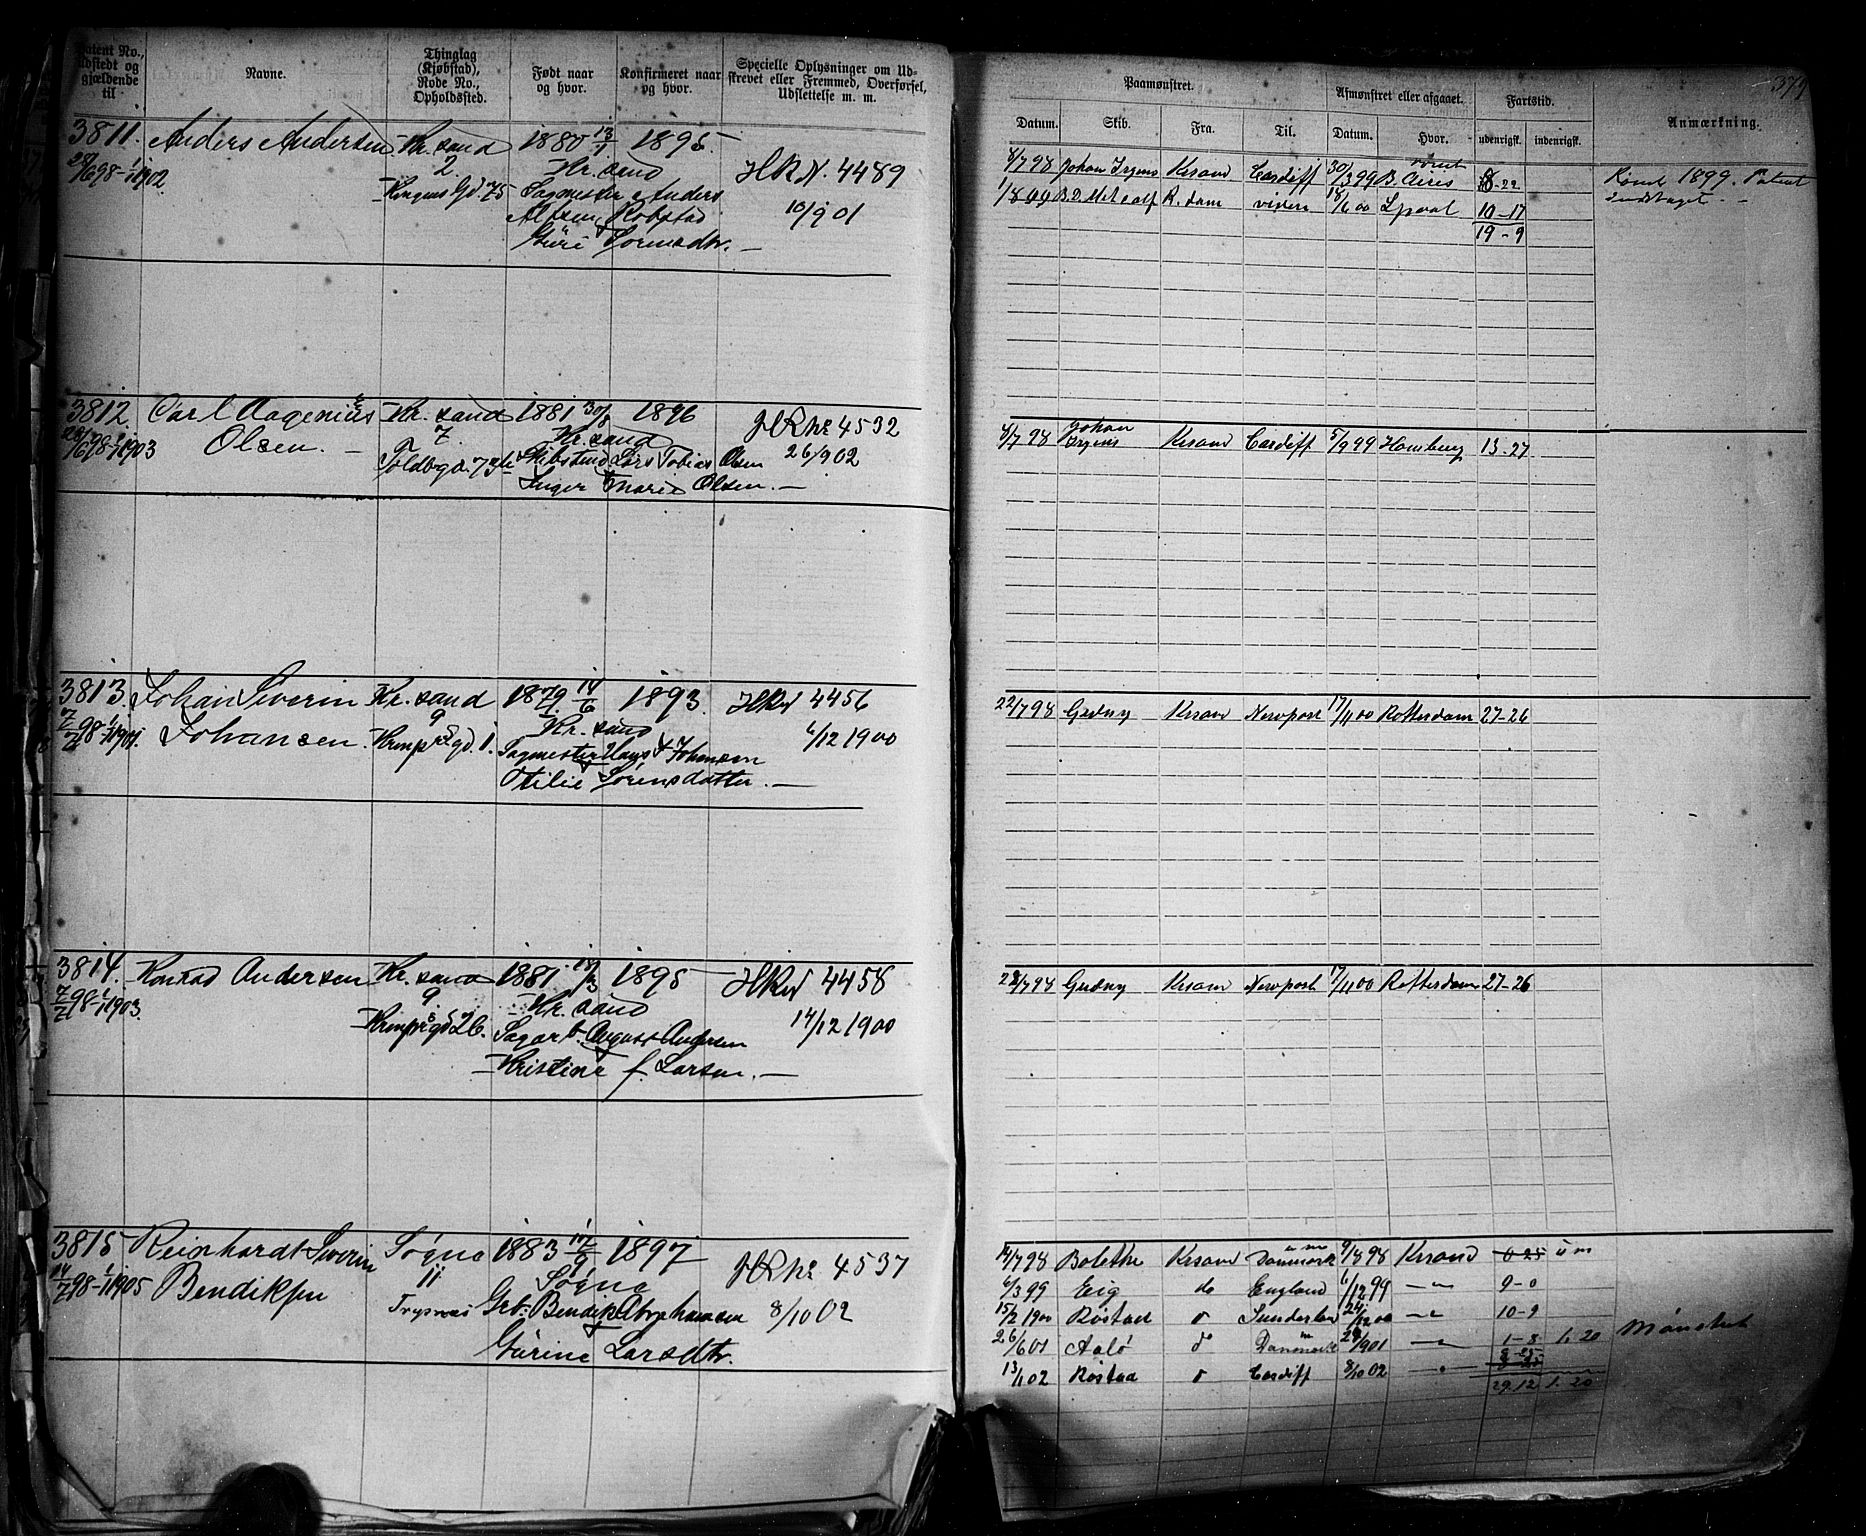 Patent No., udstedt og gjældende til
Navne.
Thinglag (Kjøbstad), Rode No., Opholdssted.
Født naar og hvor.
Konfirmeret naar og hvor.
Specielle Oplysninger om Udskrevet eller Fremmed, Overførsel, Udslettelse m. m.
Paamønstret.
Afmønstret eller afgaaet.
Fartstid.
Anmærkning.
Datum. Skib. Fra. Til. Datum. Hvor. udenrigsk. indenrigsk.
3811. Anders Andersen Kr.sand 1880 13/1 1895.
28/6 98 - 1/1 1902 2. Kr.sand HRN 4489
Kongens Gd 75 Sagmester Anders
Alfsen Robstad 10/9 01
Guri Sørensdtr. —
4/7 98 Johan Irgens Krsand Cardiff 30/3 99 B. Aires 8-22 1899. Patent
1/8 99 B.D. Metcalf R.dam videre 18/6 00 Lpool 10-17 inddraget. -
19-9
3812. Carl Aagenius Kr.sand 1881 30/8 1896 HRNo 4532
Olsen. — 7. Kr.sand
Toldbgd. 73 Lars Tobias Olsen 26/9 02
Inger Marie Olsen. —
4/7 98 Johan Irgens Krsand Cardiff 5/9 99 Hamburg 13-27
3813. Johan Severin Kr.sand 1879 14/6 1893. HRN 4456
Johansen. 9 Kr.sand 6/12 1900
Kronprs gd. 1. Sagmester Hans Johansen
Otilie Sørensdatter. —
22/7 98 Gedny Krsand Newport 17/11 00 Rotterdam 27-26
3814. Konrad Andersen Kr.sand 1881 18/3 1895 HRN 4458
7/7 98 - 1/1 1903. 9. Kr.sand 14/12 1900
Kronprs gd 26. Sagarb. August Andersen
Kristine f. Larsen. —
22/7 98 Gedny Krsand Newport 17/11 00 Rotterdam 27-26
3815 Reinhardt Severin Søgne 1883 17/9 1897 HRNo 4537
14/7 98 - 1/1 1905 Bendiksen 11 Søgne
Trysnes Bendik Abrahamsen 8/10 02
Gurine Larsdtr.
14/7 98 Bolethe Krsand Danmark 9/8 98 Krsand 0-25 um
4/3 99 Eig do England 6/12 99 —"— 9-0
15/2 1900 Røstad do Sunderland 24/12 00 —"— 10-9
26/6 01 Aalø do Danmark —"— 1-8 1.20 Mønstret
13/1 02 Røstad do Cardiff 8/10 02 —"— 8-25
29.12 1.20